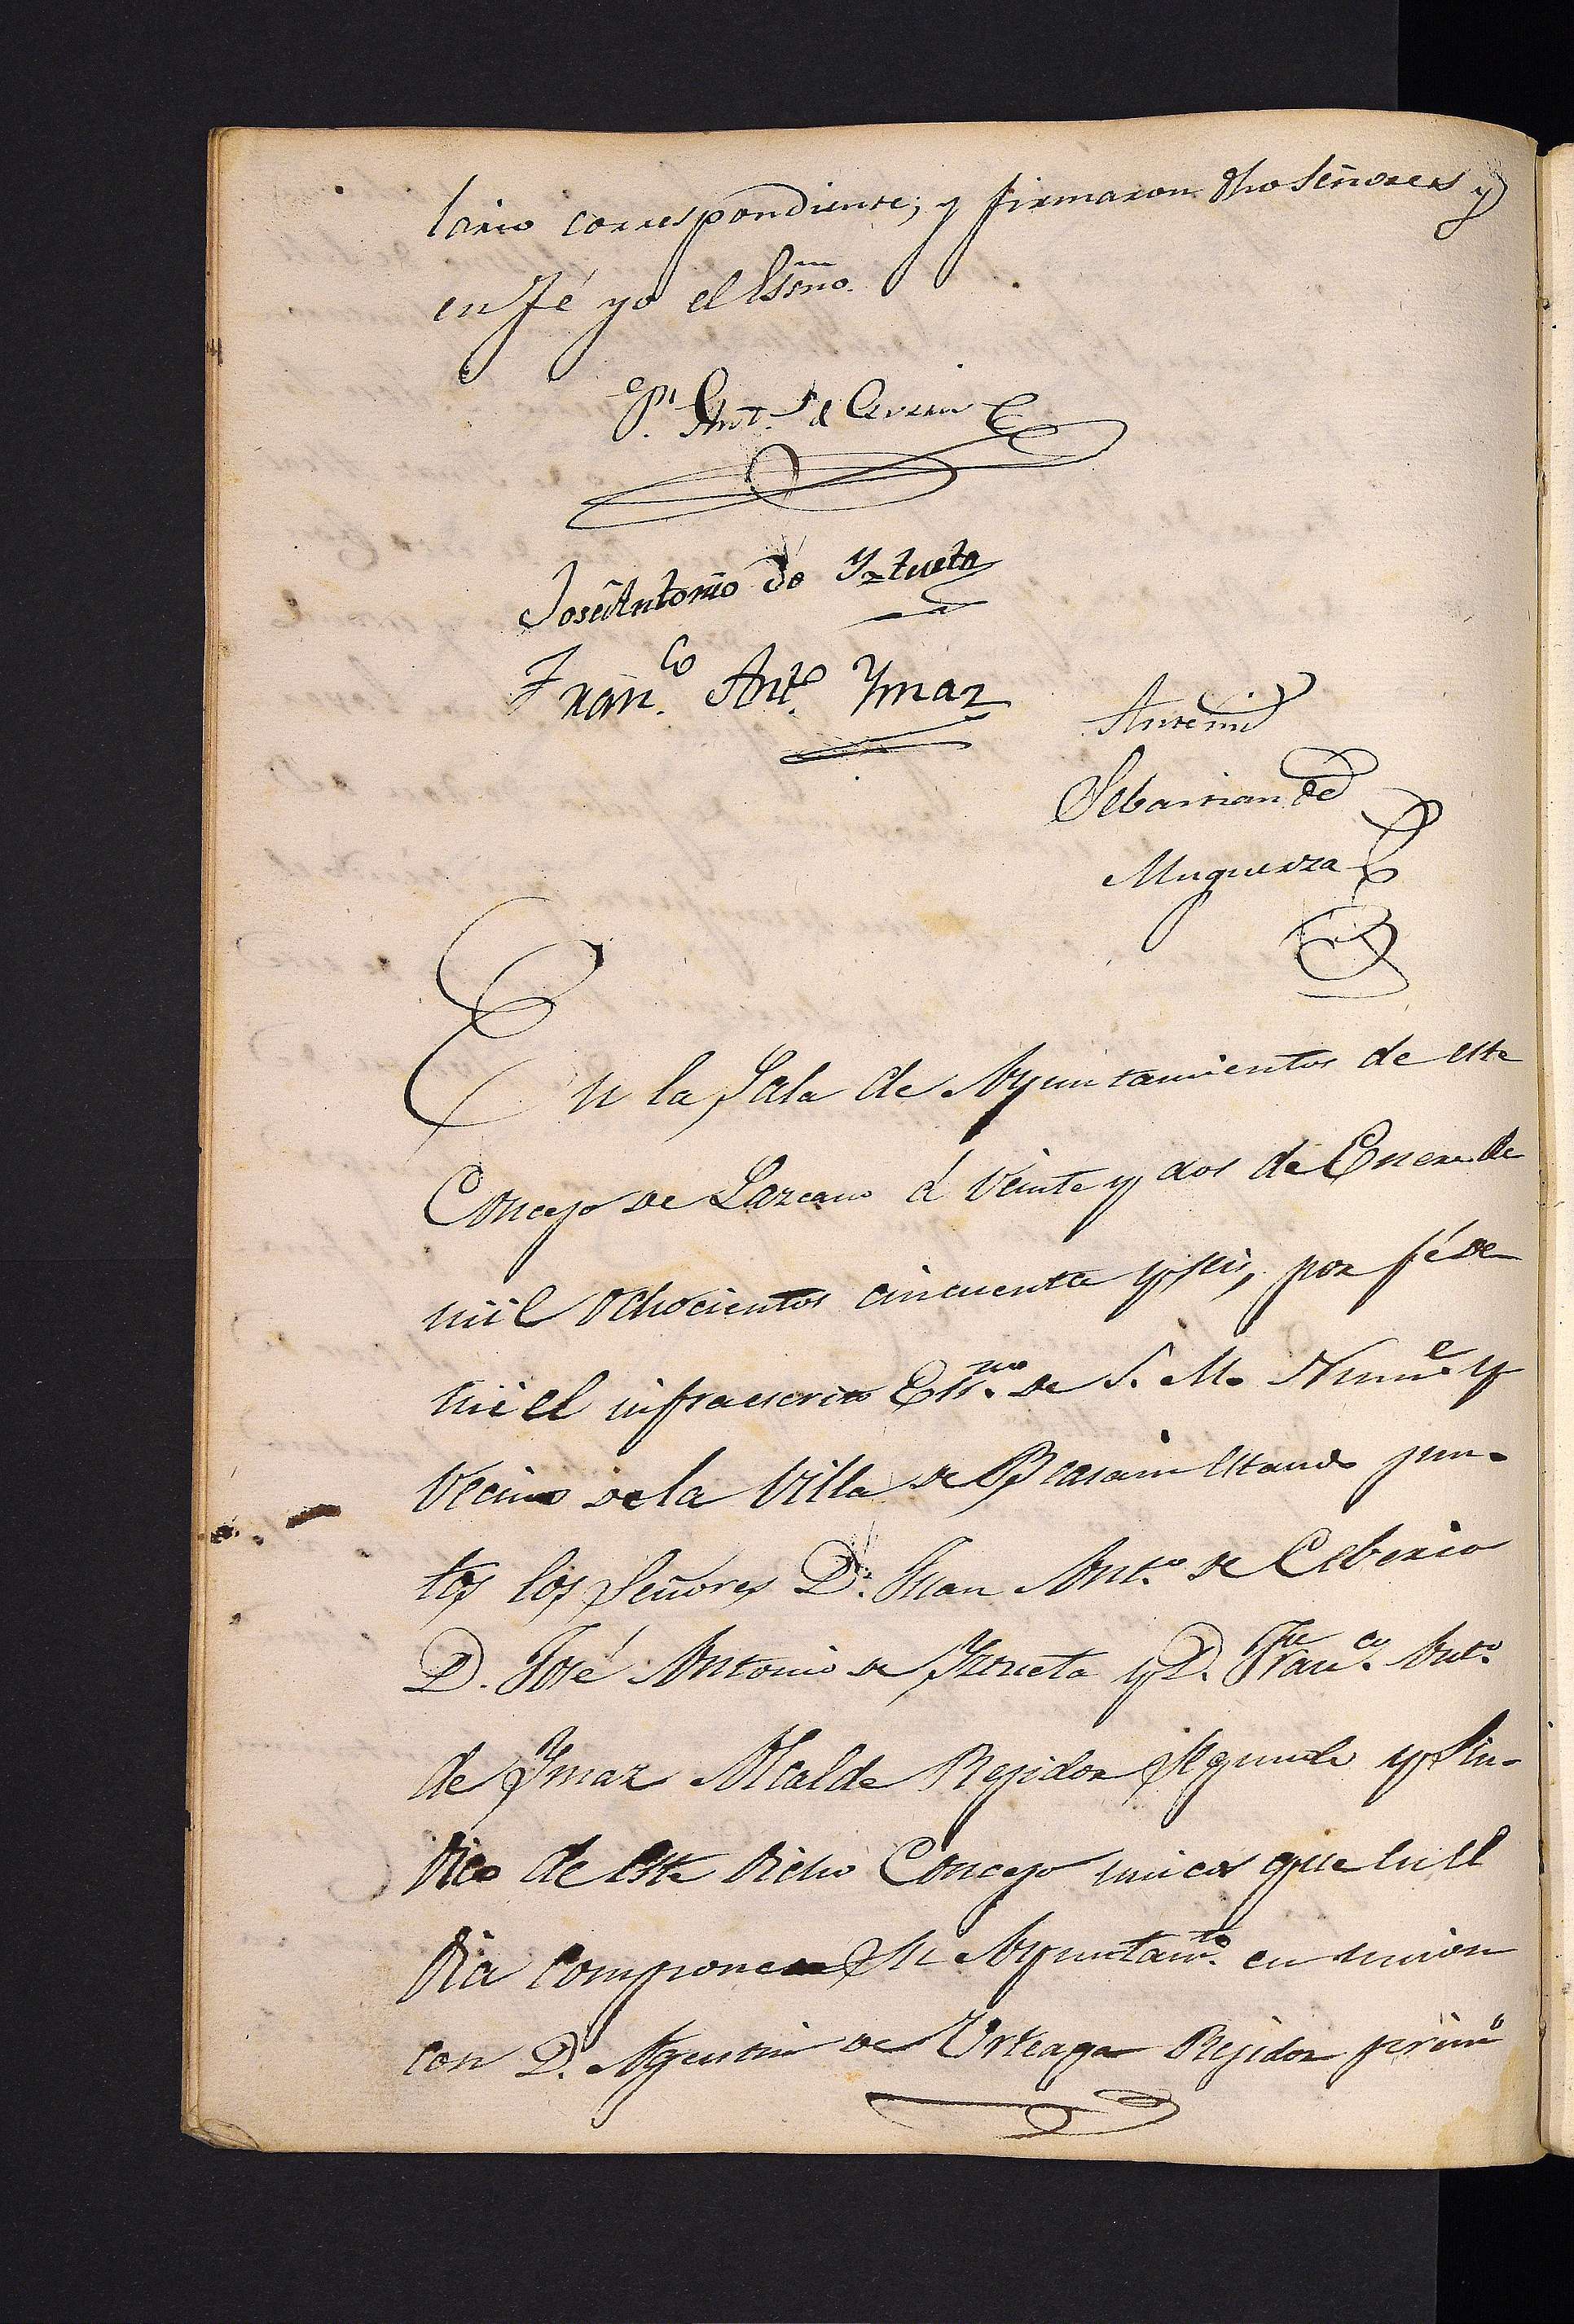 tario correspondiente; y firmaron dho Señores y
en fé yo el Essno.
Jn. Anto. de Ceverio
José Antonio de Yztueta
Franco. Anto. Ymaz
Antemi
Sebastian de
Muguerza
En la Sala de Ayuntamientos de este
Concejo de Lazcano á veinte y dos de Enero de
mil ochocientos cincuenta y seis, por fé de
mi el infraescrito Essno. de S. M. Nume. y
vecino de la Villa de Beasain estando jun-
tos los Señores D. Juan Anto. de Ceberio
D. José Antonio de Yztueta y D. Franco. Anto.
de Ymaz Alcalde Rejidor segundo y Sin-
dico de este dicho Concejo unicos que en el
dia componen su Ayuntamto. en union
con D. Agustin de Urteaga Rejidor primo